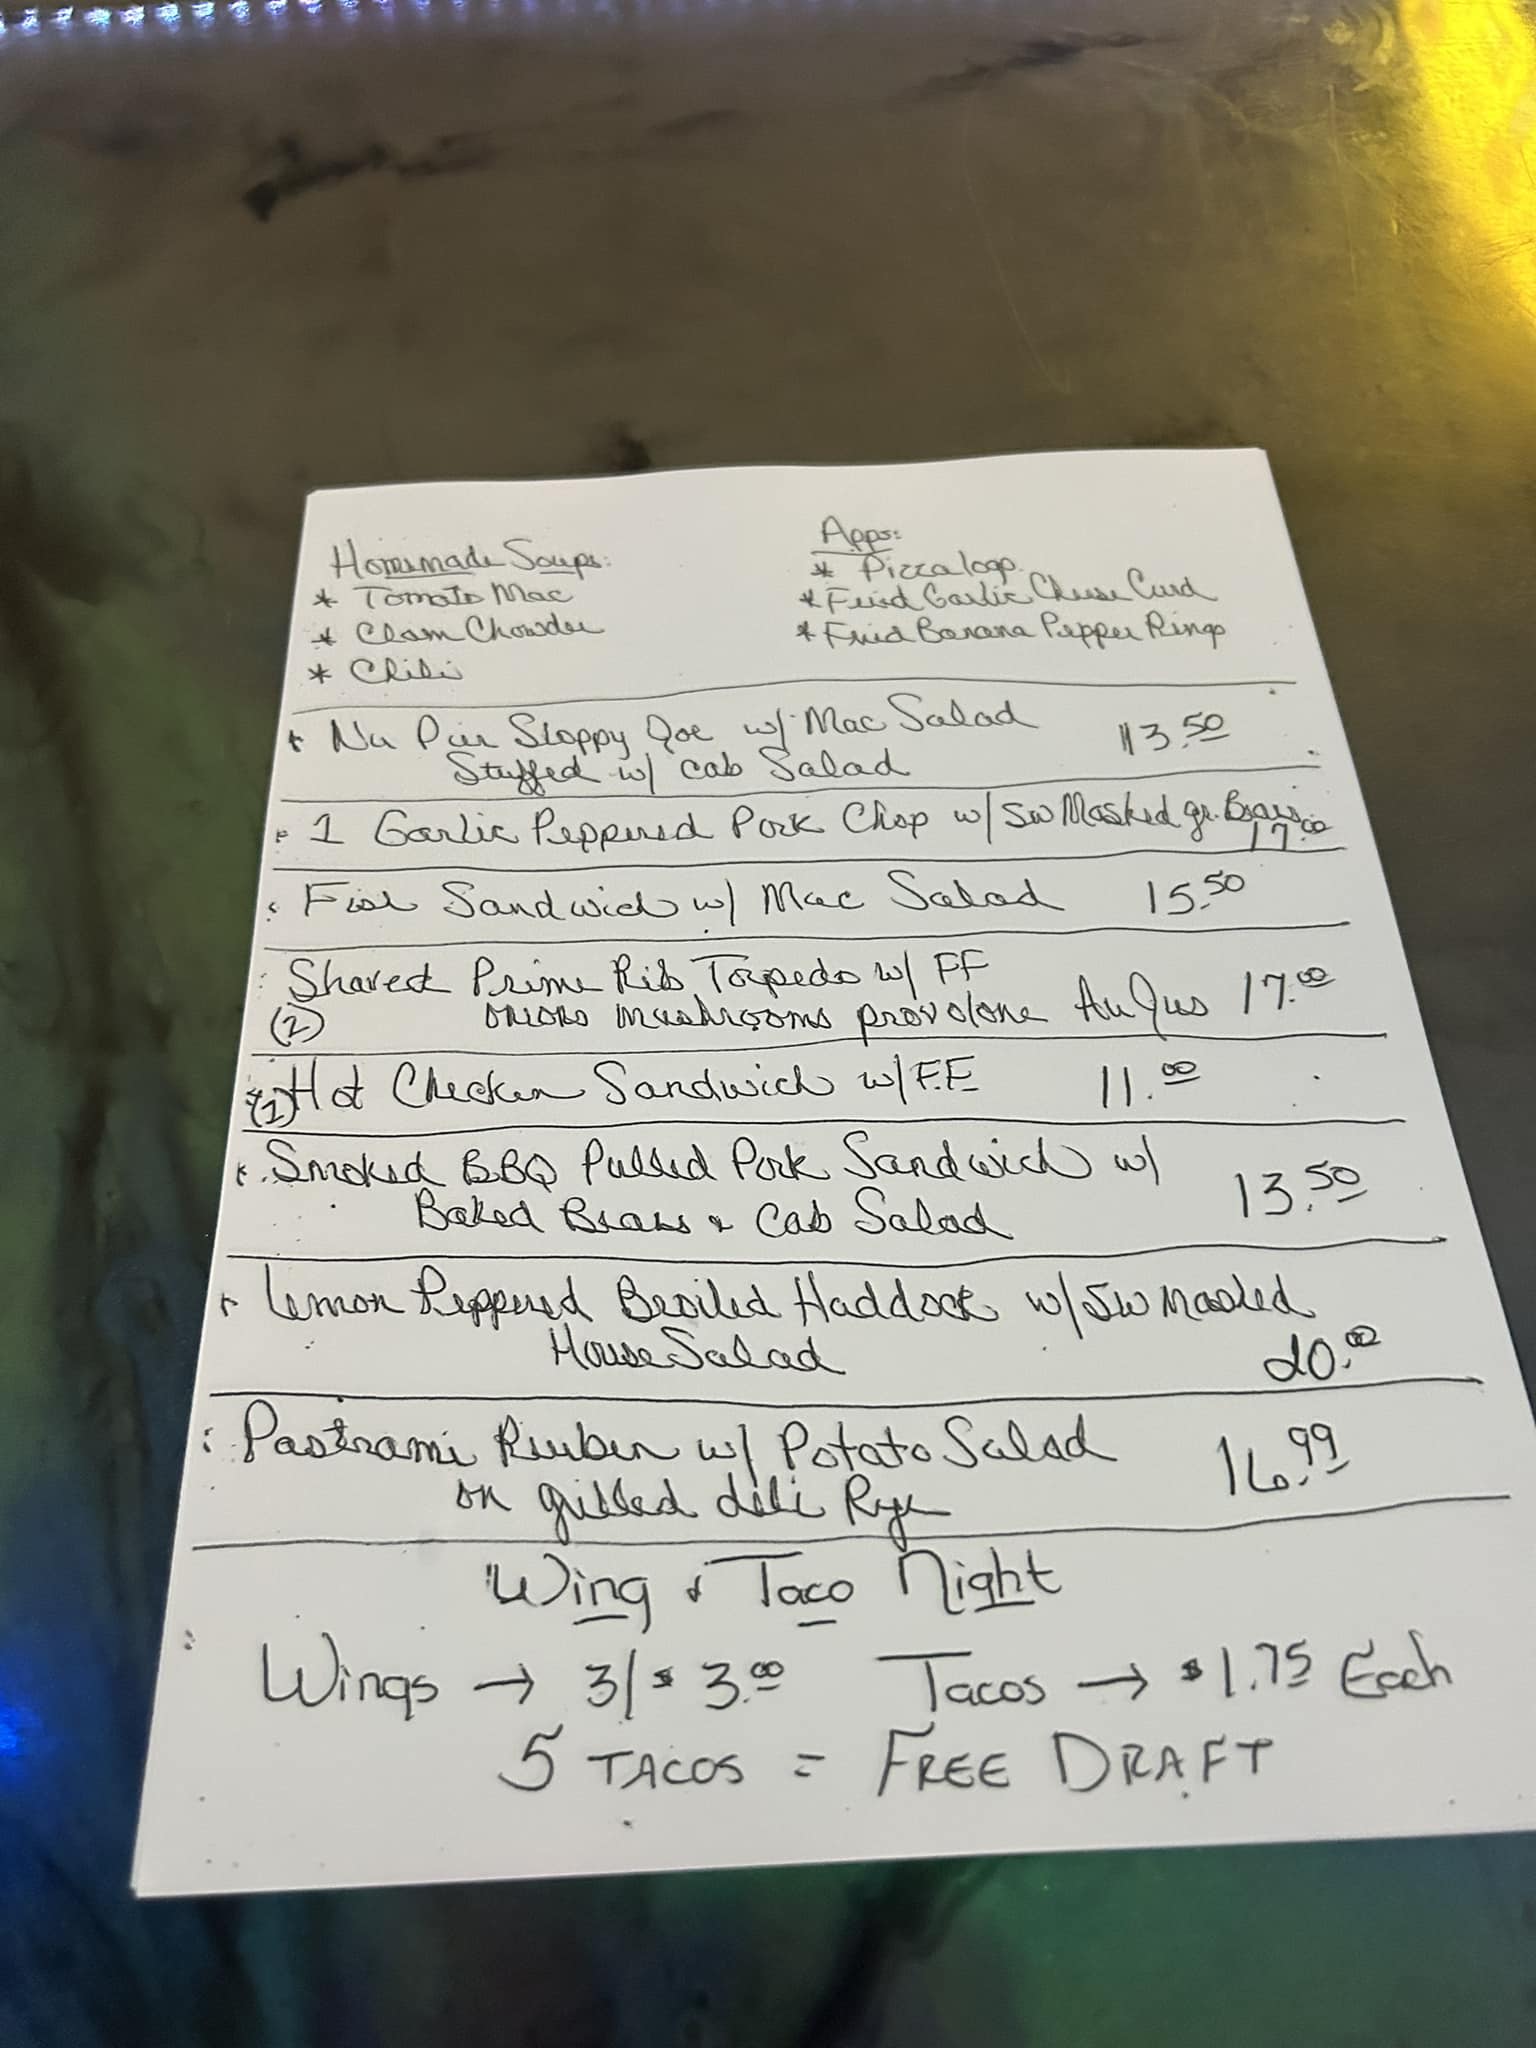 Homemade Soups:
* Tomato Mac
* Clam Chowder
* Chili
Apps:
* Pizza logs
* Fried Garlic Cheese Curd
* Fried Banana Pepper Rings
* Sloppy Joe w/ Mac Salad 13.50
Stuffed w/ cab Salad
1 Garlic Peppered Pork Chop w/ SW Mashed gr. Beans
17.00
Fish Sandwich w/ Mac Salad 15.50
Shaved Prime Rib Torpedo w/ FF
(2) onions mushrooms provolone Au Jus 17.00
(1) Hot Chicken Sandwich w/ F.F. 11.00
Smoked BBQ Pulled Pork Sandwich w/
Baked Beans & Cab Salad 13.50
Lemon Peppered Broiled Haddock w/ SW Mashed
House Salad 20.00
Pastrami Rueben w/ Potato Salad 16.99
on grilled deli Rye
Wing & Taco Night
Wings → 3/$3.00 Tacos → $1.75 Each
5 TACOS = FREE DRAFT